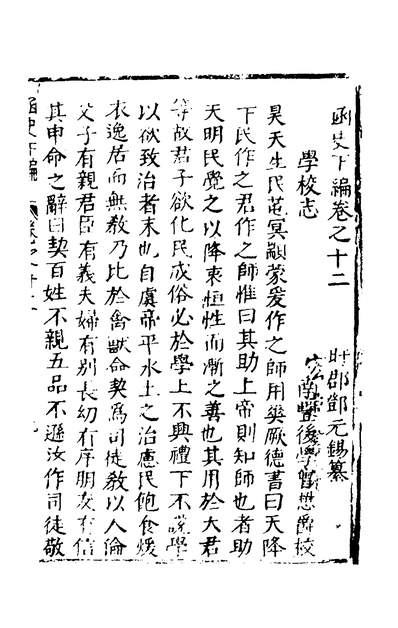 函史下編卷之十二
盱郡鄧元錫纂
學校志
南豐後學曾懋爵校
昊天生民芚冥顓蒙爰作之師用奬厥德書曰天降
下民作之君作之師惟曰其助上帝則知師也者助
天明民覺之以降衷恒性而漸之善也其用於大君
等故君子欲化民成俗必於學上不興禮下不說學
以欲致治者末也自虞帝平水土之治慮民飽食煖
衣逸居而無教乃比於禽獸命契爲司徒教以人倫
父子有親君臣有義夫婦有别長幼有序朋友有信
其申命之辭曰契百姓不親五品不遜汝作司徒敬
函史下編